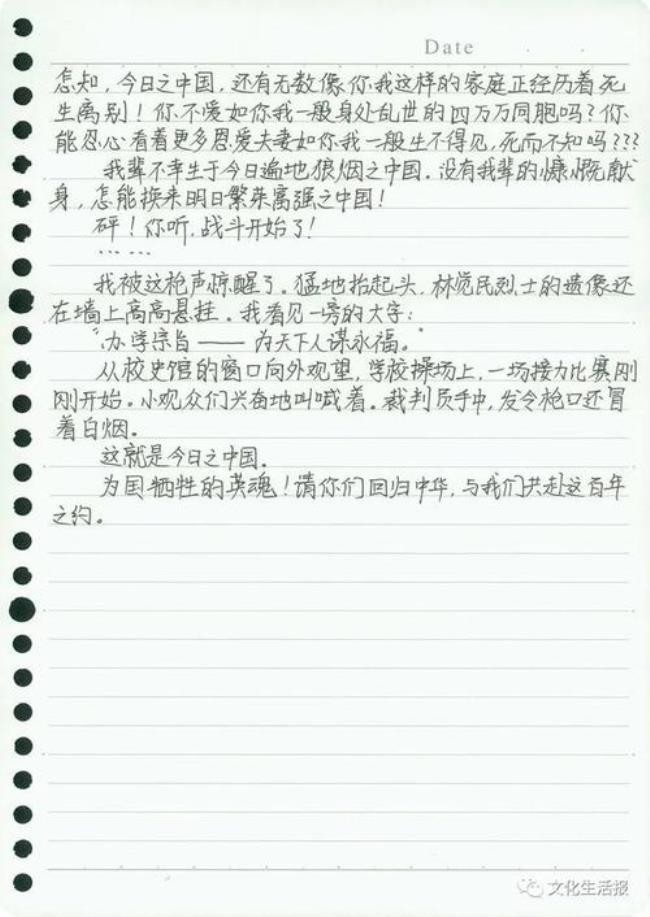 Date
怎知，今日之中国，还有无数像你我这样的家庭正经历着死
生离别！你不爱如你我一般身处乱世的四万万同胞吗？你
能忍心看着更多恩爱夫妻如你我一般生不得见，死而不知吗???
我辈不幸生于今日遍地狼烟之中国．没有我辈的慷慨献
身，怎能换来明日繁荣富强之中国！
砰！你听，战斗开始了！
……
我被这枪声惊醒了．猛地抬起头，林觉民烈士的遗像还
在墙上高高悬挂．我看见一旁的大字：
“办学宗旨——为天下人谋永福。”
从校史馆的窗口向外观望，学校操场上，一场接力比赛刚
刚开始。小观众们兴奋地叫喊着。裁判员手中，发令枪口还冒
着白烟。
这就是今日之中国．
为国牺牲的英魂！请你们回归中华，与我们共赴这百年
之约。
文化生活报